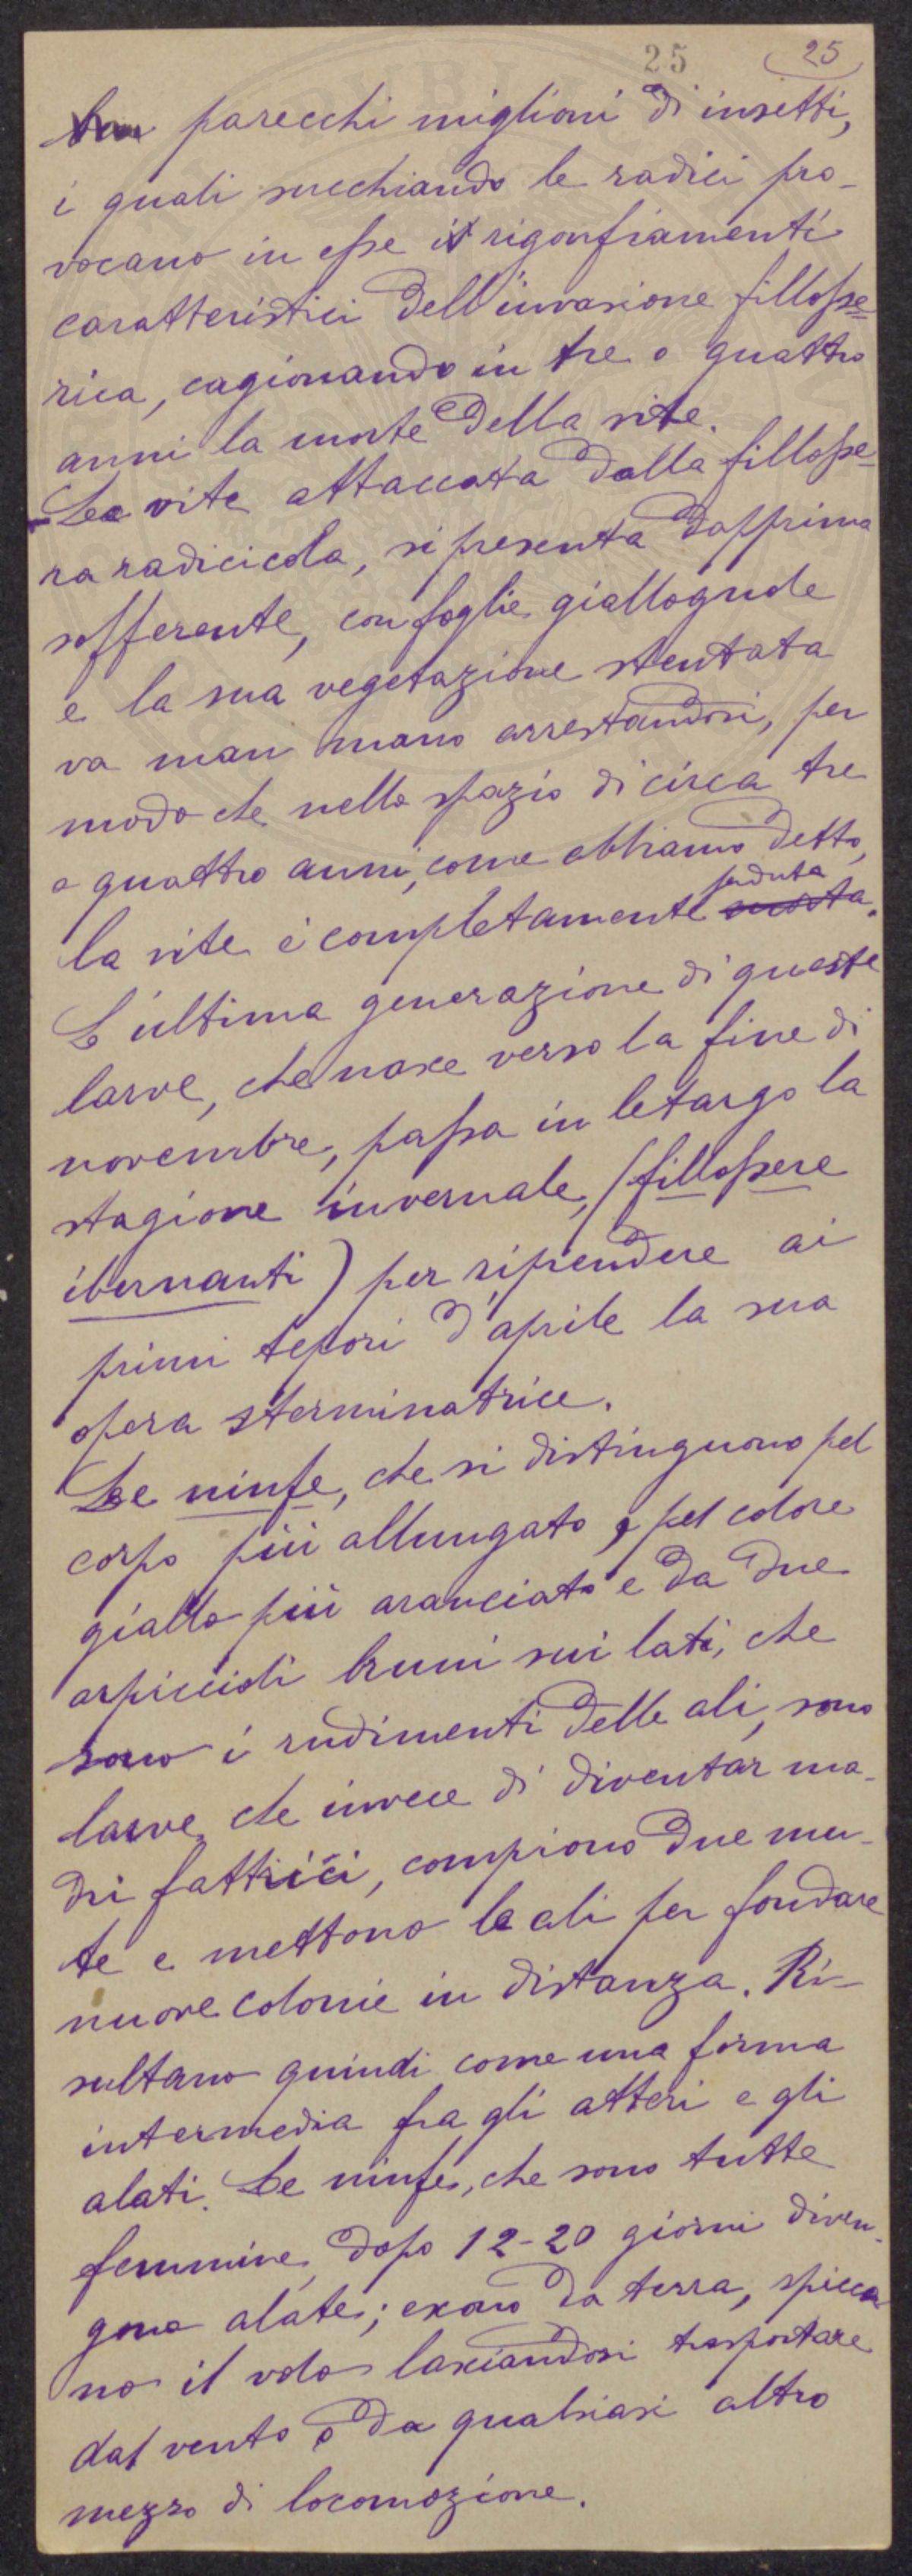 25 25
parecchi miglioni di insetti,
i quali succhiando le radici pro-
vocano in esse i rigonfiamenti
caratteristici dell'invasione fillosse-
rica, cagionando in tre o quattro
anni la morte della vite.
La vite attaccata dalla fillosse-
ra radicicola, si presenta dapprima
sofferente, con foglie giallognole
e la sua vegetazione stentata
va man mano arrestandosi, per
modo che nello spazio di circa tre
o quattro anni, come abbiamo detto,
perduta
la vite è completamente morta.
L'ultima generazione di queste
larve, che nasce verso la fine di
novembre, passa in letargo la
stagione invernale, (fillossere
ibernanti) per riprendere ai
primi tepori d'aprile la sua
opera sterminatrice.
Le ninfe, che si distinguono pel
corpo più allungato, pel colore
giallo più aranciato e da due
arpiccioli bruni sui lati, che
sono i rudimenti delle ali, sono
larve che invece di diventar ma-
dri fattrici, compiono due mu-
te e mettono le ali per fondare
nuove colonie in distanza. Ri-
sultano quindi come una forma
intermedia fra gli atteri e gli
alati. Le ninfe, che sono tutte
femmine, dopo 12-20 giorni diven-
gono alate; escono da terra, spicca-
no il volo lasciandosi trasportare
dal vento o da qualsiasi altro
mezzo di locomozione.